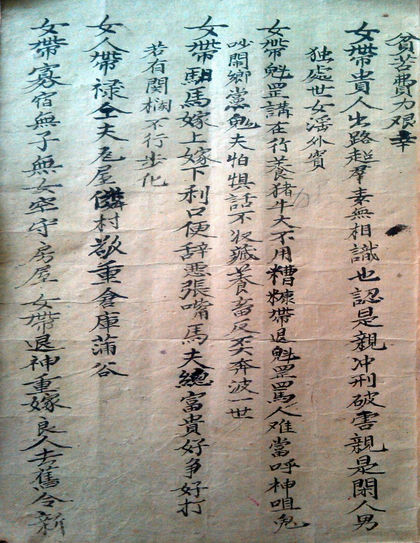 貧苦費力艰辛
女帶貴人出路超羣素無相識也認是親冲刑破害親是閑人男
独處世女淫外賓
女帶魁罡講在行養猪牛大不用糟糠帶退魁罡罵人难當呼神咀鬼
吵鬧鄉黨鬼夫怕惧話不收藏養畜反灭奔波一世
女帶馹馬嫁上嫁下利口便辞惡張嘴馬夫總富貴好爭好打
若有関欄不行步化
女人帶禄仝夫起屋隣村敬重倉庫蒲谷
女帶寡宿無子無女空守房屋女帶退神重嫁良人去舊令新